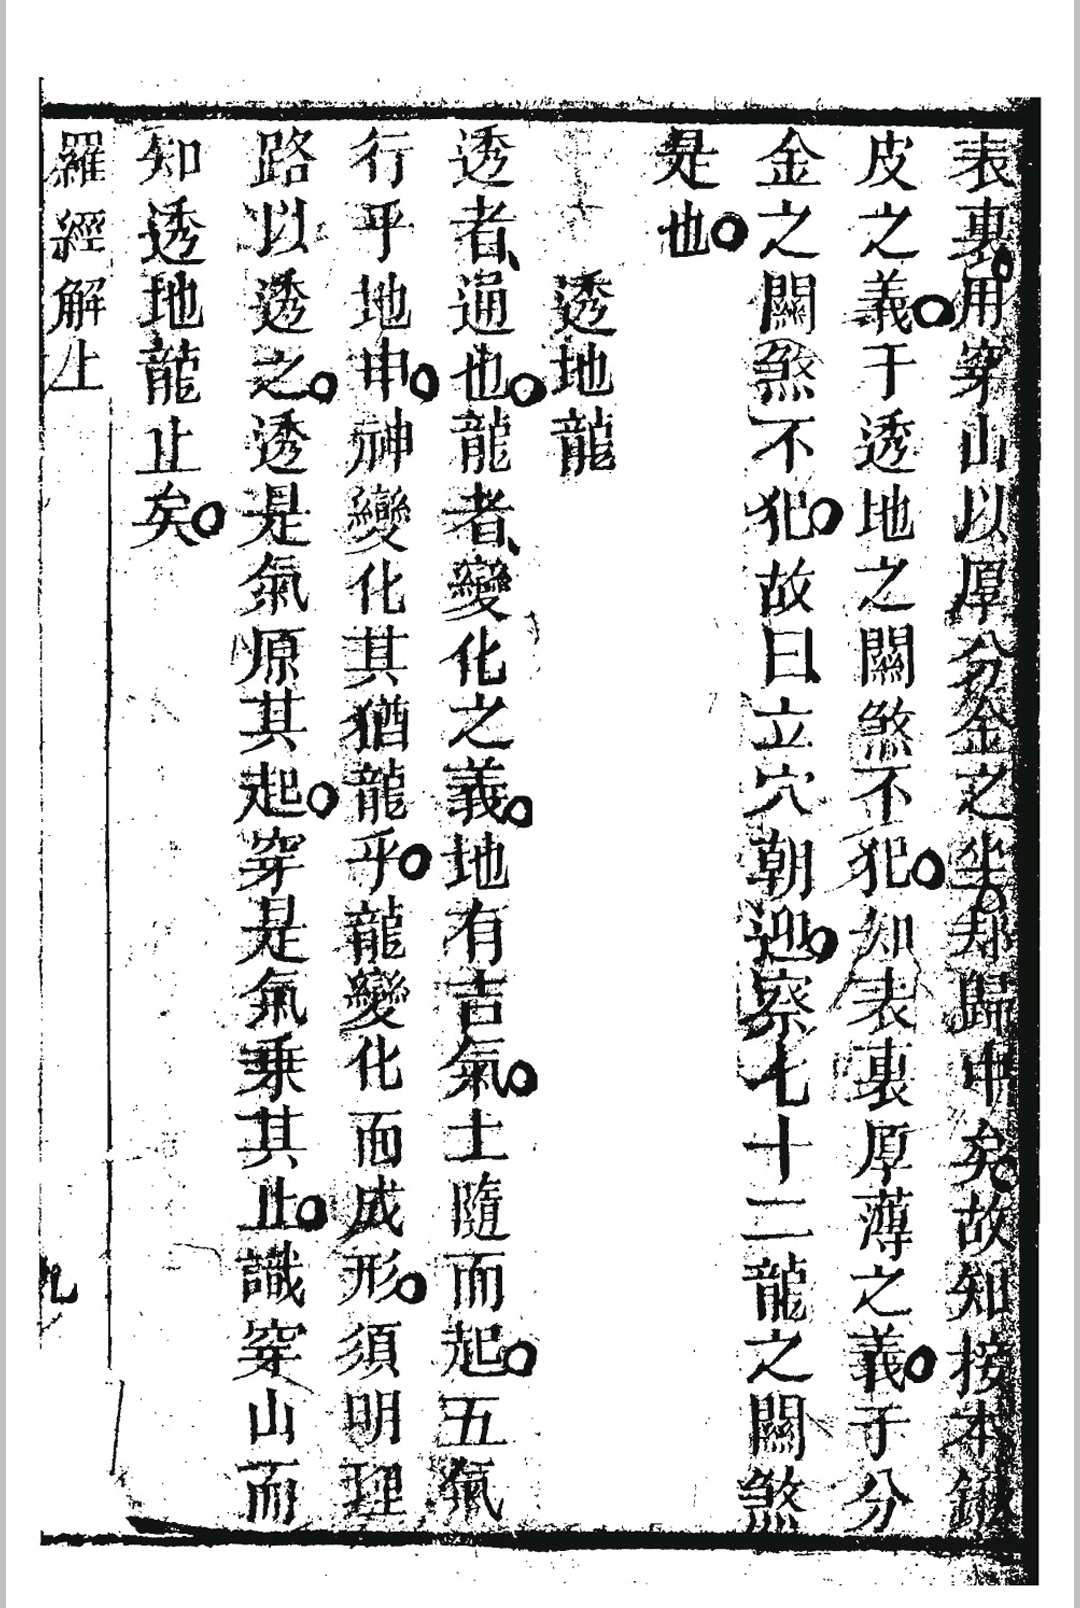 表裏。用穿山以厚分金之坐。却歸中矣。故知按本針
皮之義。于透地之關煞不犯。知表裏厚薄之義。于分
金之關煞不犯。故曰立穴朝迎。察七十二龍之關煞
是也。
透地龍
透者、通也。龍者、變化之義。地有吉氣。土隨而起。五氣
行乎地中。神變化其猶龍乎。龍變化而成形。須明理
路以透之。透是氣原其起。穿是氣乗其止。識穿山而
知透地龍止矣。
羅經解上
九